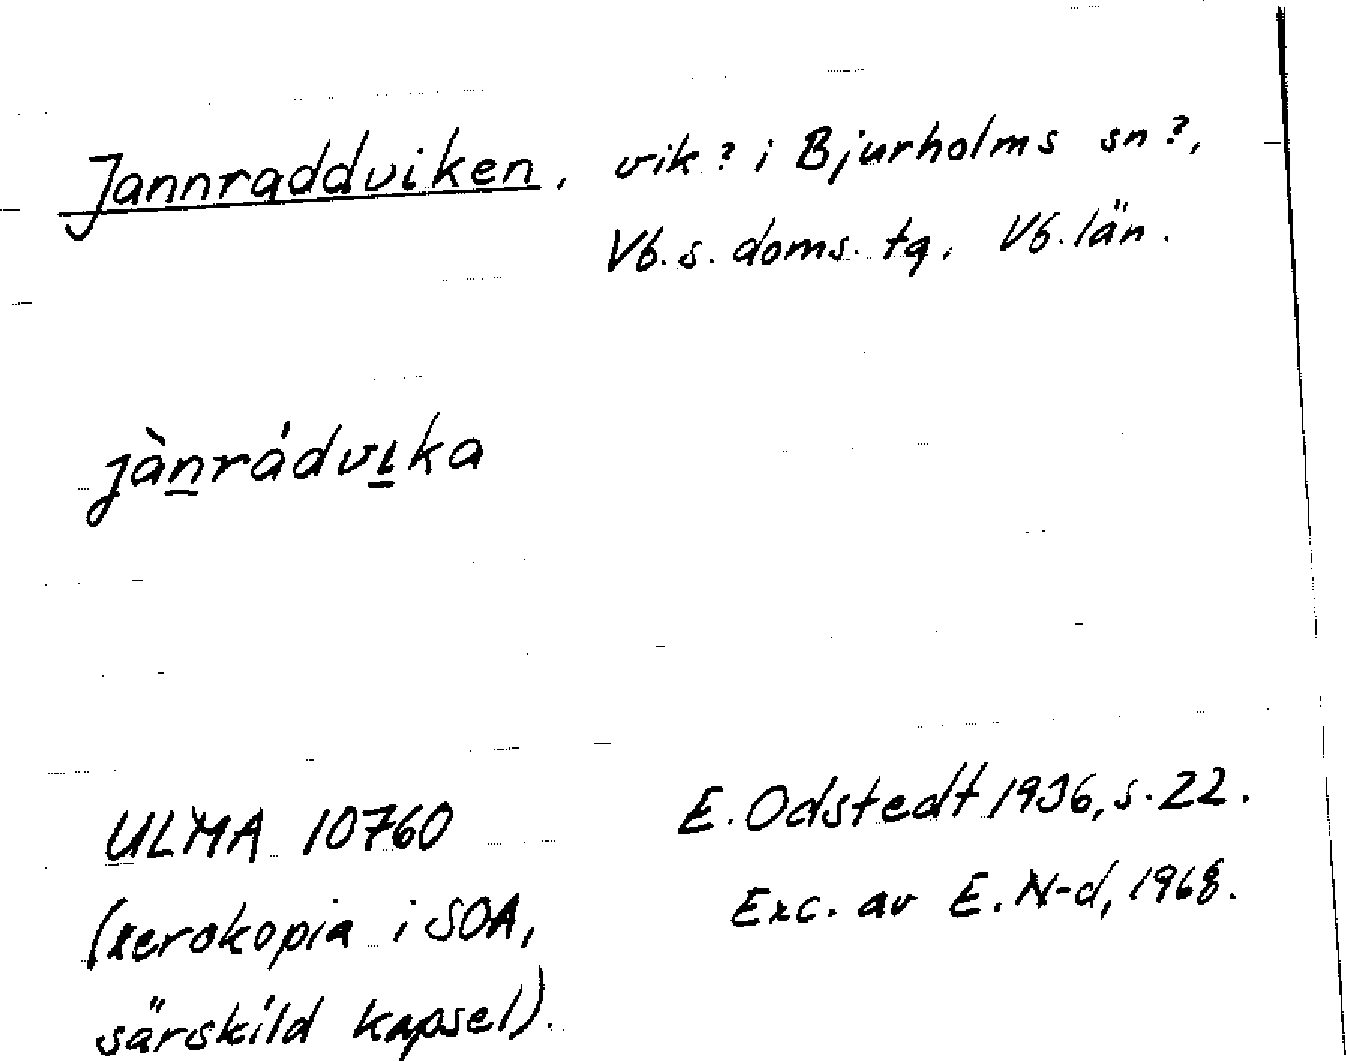 Jannraddviken, vik? i Bjurholms sn?,
Vb. s. doms. tg, Vb. län.
jànrádvɩka
ULMA 10760
(xerokopia i SOA,
särskild kapsel).
E. Odstedt 1936, s. 22.
Exc. av E. N-d, 1968.